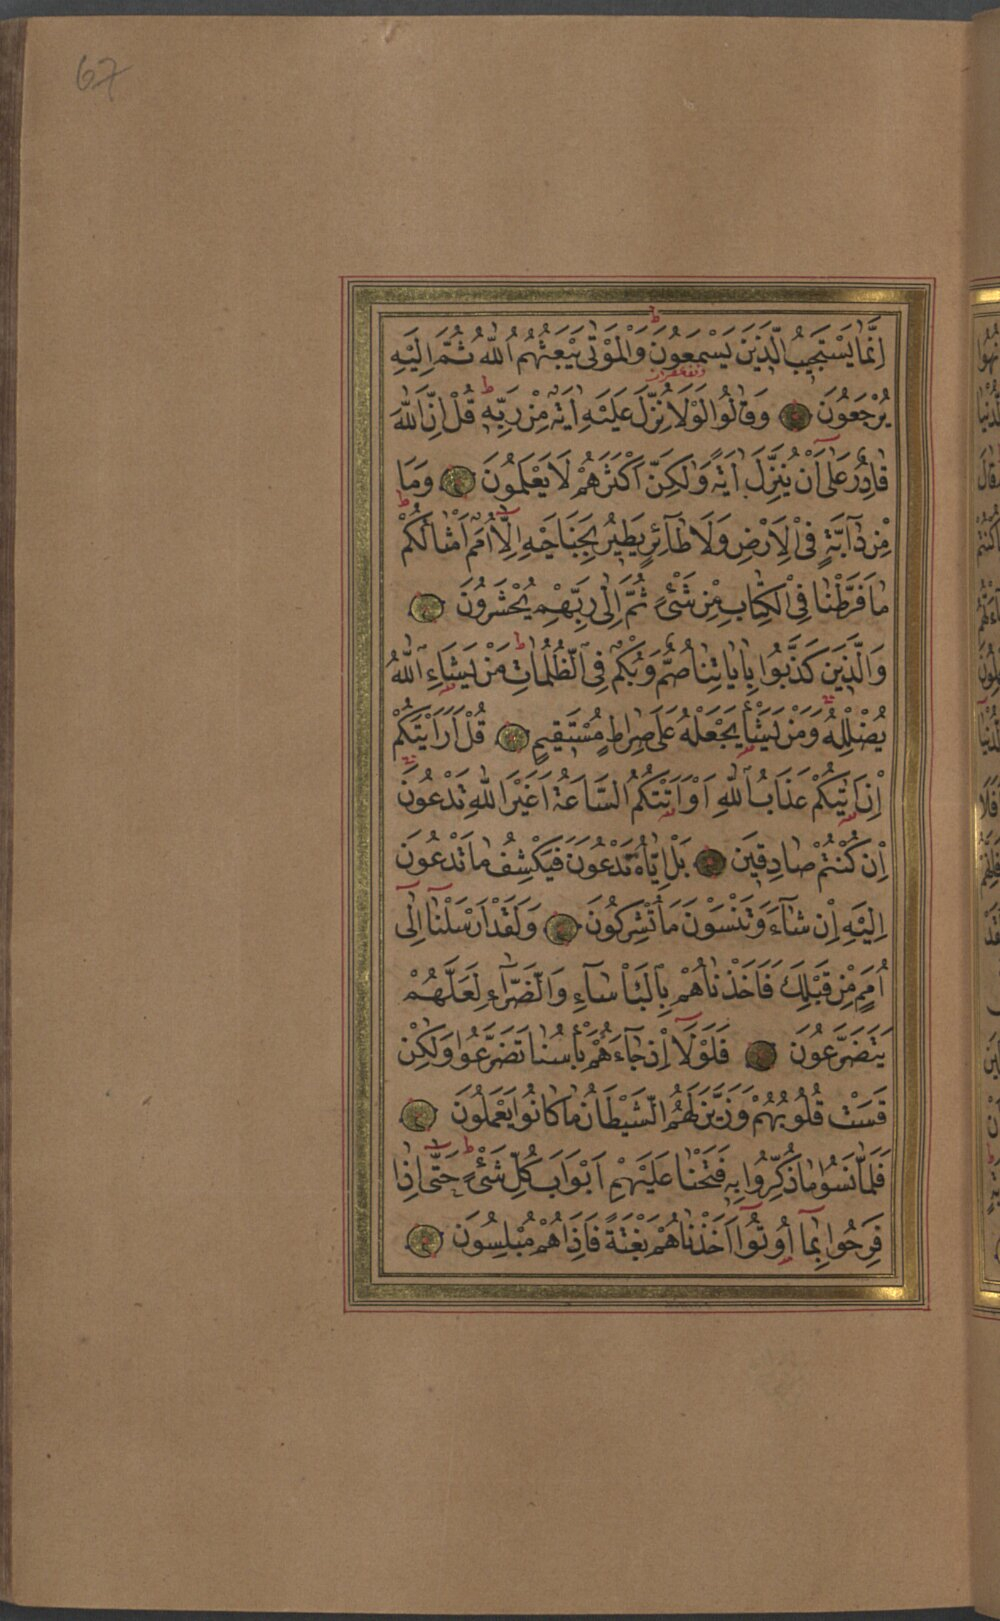 67
اِنَّمَا يَسْتَجِيبُ الَّذِينَ يَسْمَعُونَ ط وَالْمَوْتٰى يَبْعَثُهُمُ اللّٰهُ ثُمَّ اِلَيْهِ
يُرْجَعُونَ وَقَالُوا لَوْلَا نُزِّلَ عَلَيْهِ اٰيَةٌ مِنْ رَبِّهِ ط قُلْ اِنَّ اللّٰهَ
قَادِرٌ عَلٰى اَنْ يُنَزِّلَ اٰيَةً وَلٰكِنَّ اَكْثَرَهُمْ لَا يَعْلَمُونَ وَمَا
مِنْ دَابَّةٍ فِى الْاَرْضِ وَلَا طَائِرٍ يَطِيرُ بِجَنَاحَيْهِ اِلَّا اُمَمٌ اَمْثَالُكُمْ ط
مَا فَرَّطْنَا فِى الْكِتَابِ مِنْ شَىْءٍ ثُمَّ اِلٰى رَبِّهِمْ يُحْشَرُونَ
وَالَّذِينَ كَذَّبُوا بِاٰيَاتِنَا صُمٌّ وَبُكْمٌ فِى الظُّلُمَاتِ ط مَنْ يَشَاءِ اللّٰهُ
يُضْلِلْهُ وَمَنْ يَشَأْ يَجْعَلْهُ عَلٰى صِرَاطٍ مُسْتَقِيمٍ قُلْ اَرَاَيْتَكُمْ
اِنْ اَتٰيكُمْ عَذَابُ اللّٰهِ اَوْ اَتَتْكُمُ السَّاعَةُ اَغَيْرَ اللّٰهِ تَدْعُونَ
اِنْ كُنْتُمْ صَادِقِينَ بَلْ اِيَّاهُ تَدْعُونَ فَيَكْشِفُ مَا تَدْعُونَ
اِلَيْهِ اِنْ شَاءَ وَتَنْسَوْنَ مَا تُشْرِكُونَ وَلَقَدْ اَرْسَلْنَا اِلٰى
اُمَمٍ مِنْ قَبْلِكَ فَاَخَذْنَاهُمْ بِالْبَأْسَاءِ وَالضَّرَّاءِ لَعَلَّهُمْ
يَتَضَرَّعُونَ فَلَوْلَا اِذْ جَاءَهُمْ بَأْسُنَا تَضَرَّعُوا وَلٰكِنْ
قَسَتْ قُلُوبُهُمْ وَزَيَّنَ لَهُمُ الشَّيْطَانُ مَا كَانُوا يَعْمَلُونَ
فَلَمَّا نَسُوا مَا ذُكِّرُوا بِهِ فَتَحْنَا عَلَيْهِمْ اَبْوَابَ كُلِّ شَىْءٍ ط حَتّٰى اِذَا
فَرِحُوا بِمَا اُوتُوا اَخَذْنَاهُمْ بَغْتَةً فَاِذَا هُمْ مُبْلِسُونَ